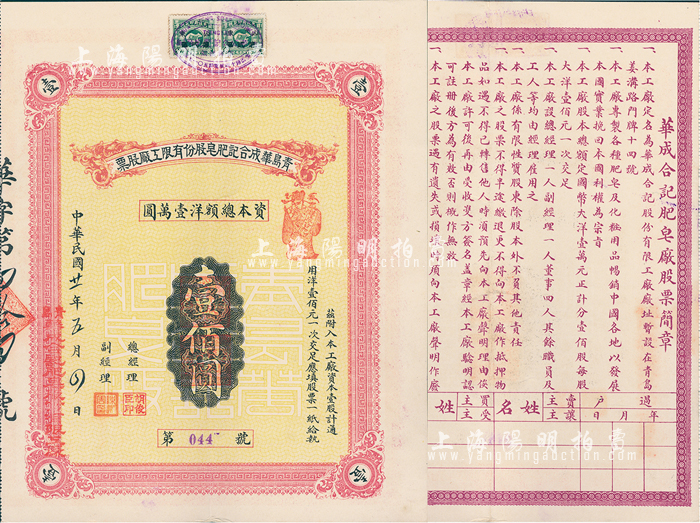 壹
壹
青島華成合記肥皂股份有限工廠股票
資本總額洋壹萬圓
茲附入本工廠資本壹股計通
用洋壹佰元一次交足應填股票一紙給執
壹佰圓
總經理
副經理
中華民國廿一年五月四日
第 044 號
壹
壹
華成合記肥皂廠股票簡章
一、本工廠定名為華成合記股份有限工廠廠址暫設在青島
姜溝路門牌十四號
一、本工廠專製各種肥皂及化粧用品暢銷中國各地以發展
本國實業挽回本國利權為宗旨
一、本工廠股本總額定國幣大洋壹萬元正計分壹佰股每股
大洋壹佰元一次交足
一、本工廠設總經理一人副經理一人董事四人其餘職員及
工人等均由經理雇用之
一、本工廠係有限性質股東除股本外不負其他責任
一、本工廠之股票不得半途繳退更不得向本工廠作抵押物
品如遇不得已轉售他人時須預先向本工廠聲明理由俟
本工廠許可後再由受收雙方簽名蓋章經本工廠驗明認
可註冊後方為有效否則概作無效
一、本工廠之股票遇有遺失或損壞時須向本工廠聲明作廢
過戶
年月日
賣主
讓主
姓名
買主
受主
姓
上海陽明拍賣
www.yangmingauction.com
上海陽明拍賣
www.yangmingauction.com
上海陽明拍賣
www.yangmingauction.com